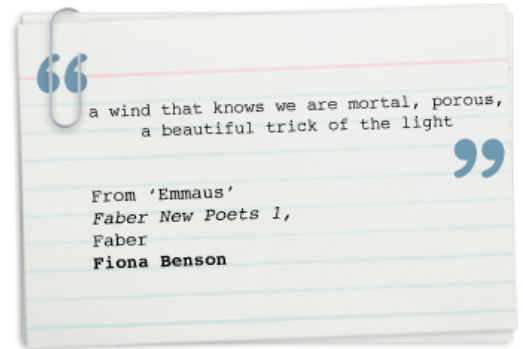 “
a wind that knows we are mortal, porous,
a beautiful trick of the light
”
From ‘Emmaus’
Faber New Poets 1,
Faber
Fiona Benson